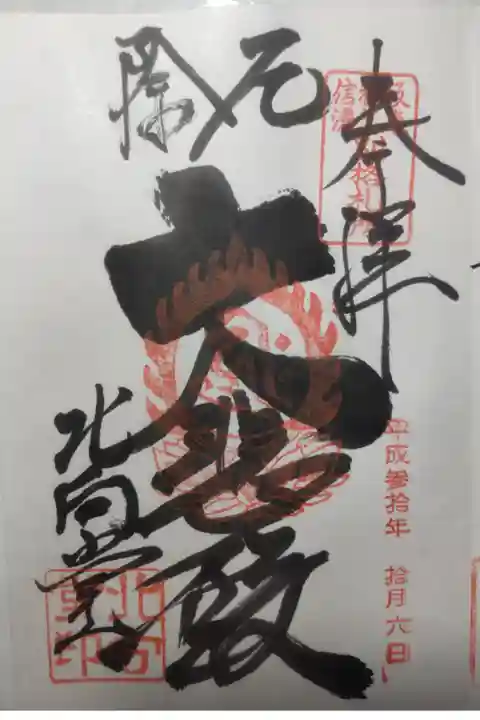 奉拝
平成叁拾年 拾月六日
厄除
大悲殿
北向堂
信濃
北向堂印